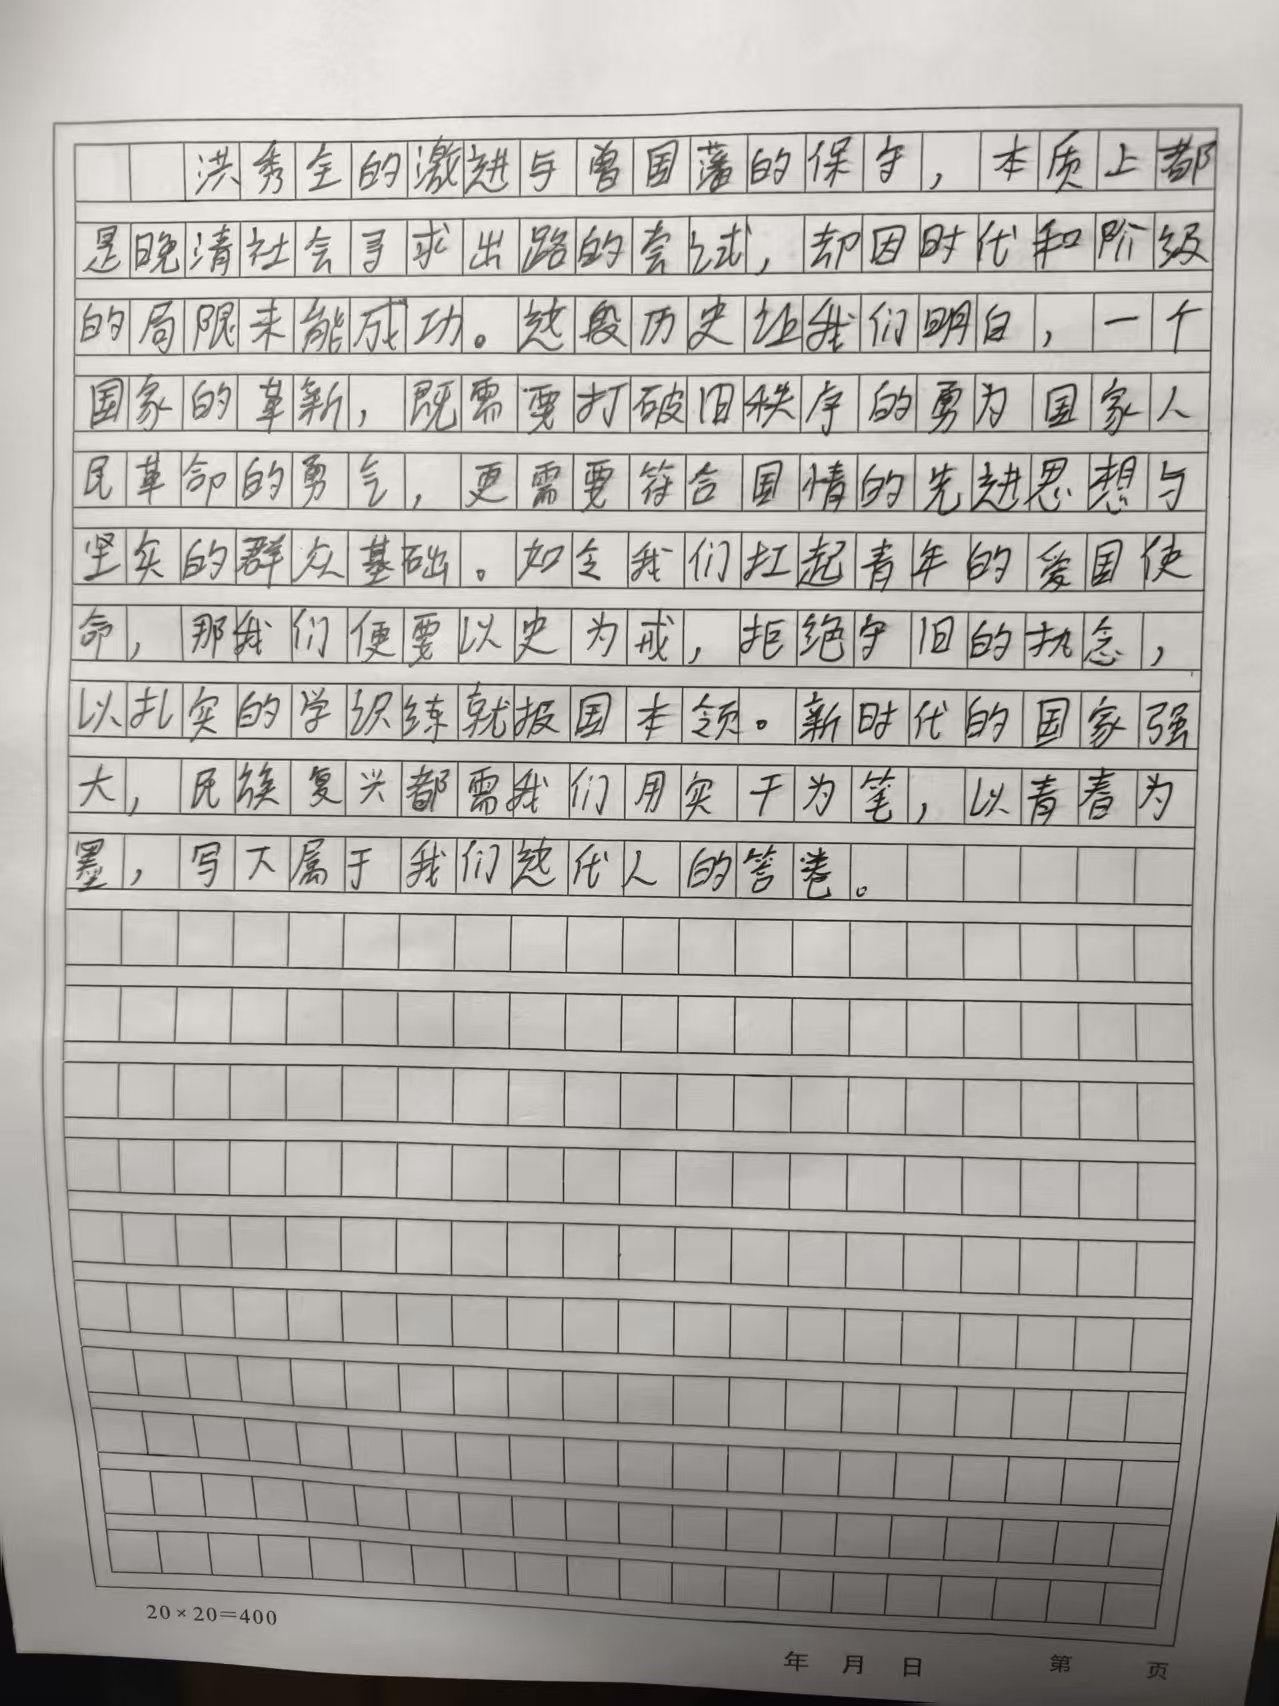 洪秀全的激进与曾国藩的保守，本质上都
是晚清社会寻求出路的尝试，却因时代和阶级
的局限未能成功。这段历史让我们明白，一个
国家的革新，既需要打破旧秩序的勇为国家人
民革命的勇气，更需要符合国情的先进思想与
坚实的群众基础。如今我们扛起青年的爱国使
命，那我们便要以史为戒，拒绝守旧的执念，
以扎实的学识练就报国本领。新时代的国家强
大，民族复兴都需我们用实干为笔，以青春为
墨，写下属于我们这代人的答卷。
20×20=400
年 月 日 第 页